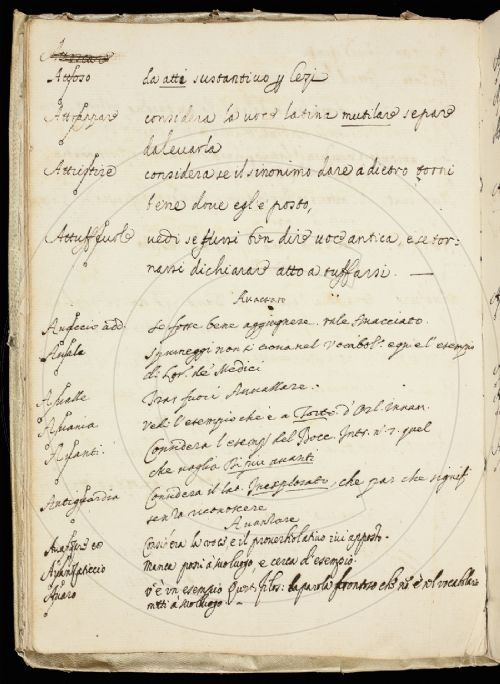 Attoso da atti sustantiuo
Attrappare considera la uoce latina mutilare se pare
daleuarla
Attristire considera se il sinonimo dare a dietro torni
bene doue egl'è posto,
Attuffeuole uedi se stessi ben dire uoce antica, e se tor-
nassi dichiarare atto a tuffarsi. —
Auaccio add. se fosse bene aggiugnere. uale
non è con a nel Vocabol.º e que l'esempio
di Lor. de Medici
Aualle Tras fuori Auuallare.
Auania Vedi l'esempio che è a Torto d'Orl. Innam.
Auanti. Considera l'esemp. del Bocc. Intr. n. 7. quel
che uaglia Più auanti
Antiguardia Considera il lat. Inexplorato, che par che signifi
senza riconoscere
Auanzare
Considera la uoce e il prouerbio latino iui apposto.
Auanzaticcio Manca poni à suo luogo, e cerca d'esempio.
Auaro u'è un esempio la parola che nō è nel uocabolario
metti à suo luogo. —